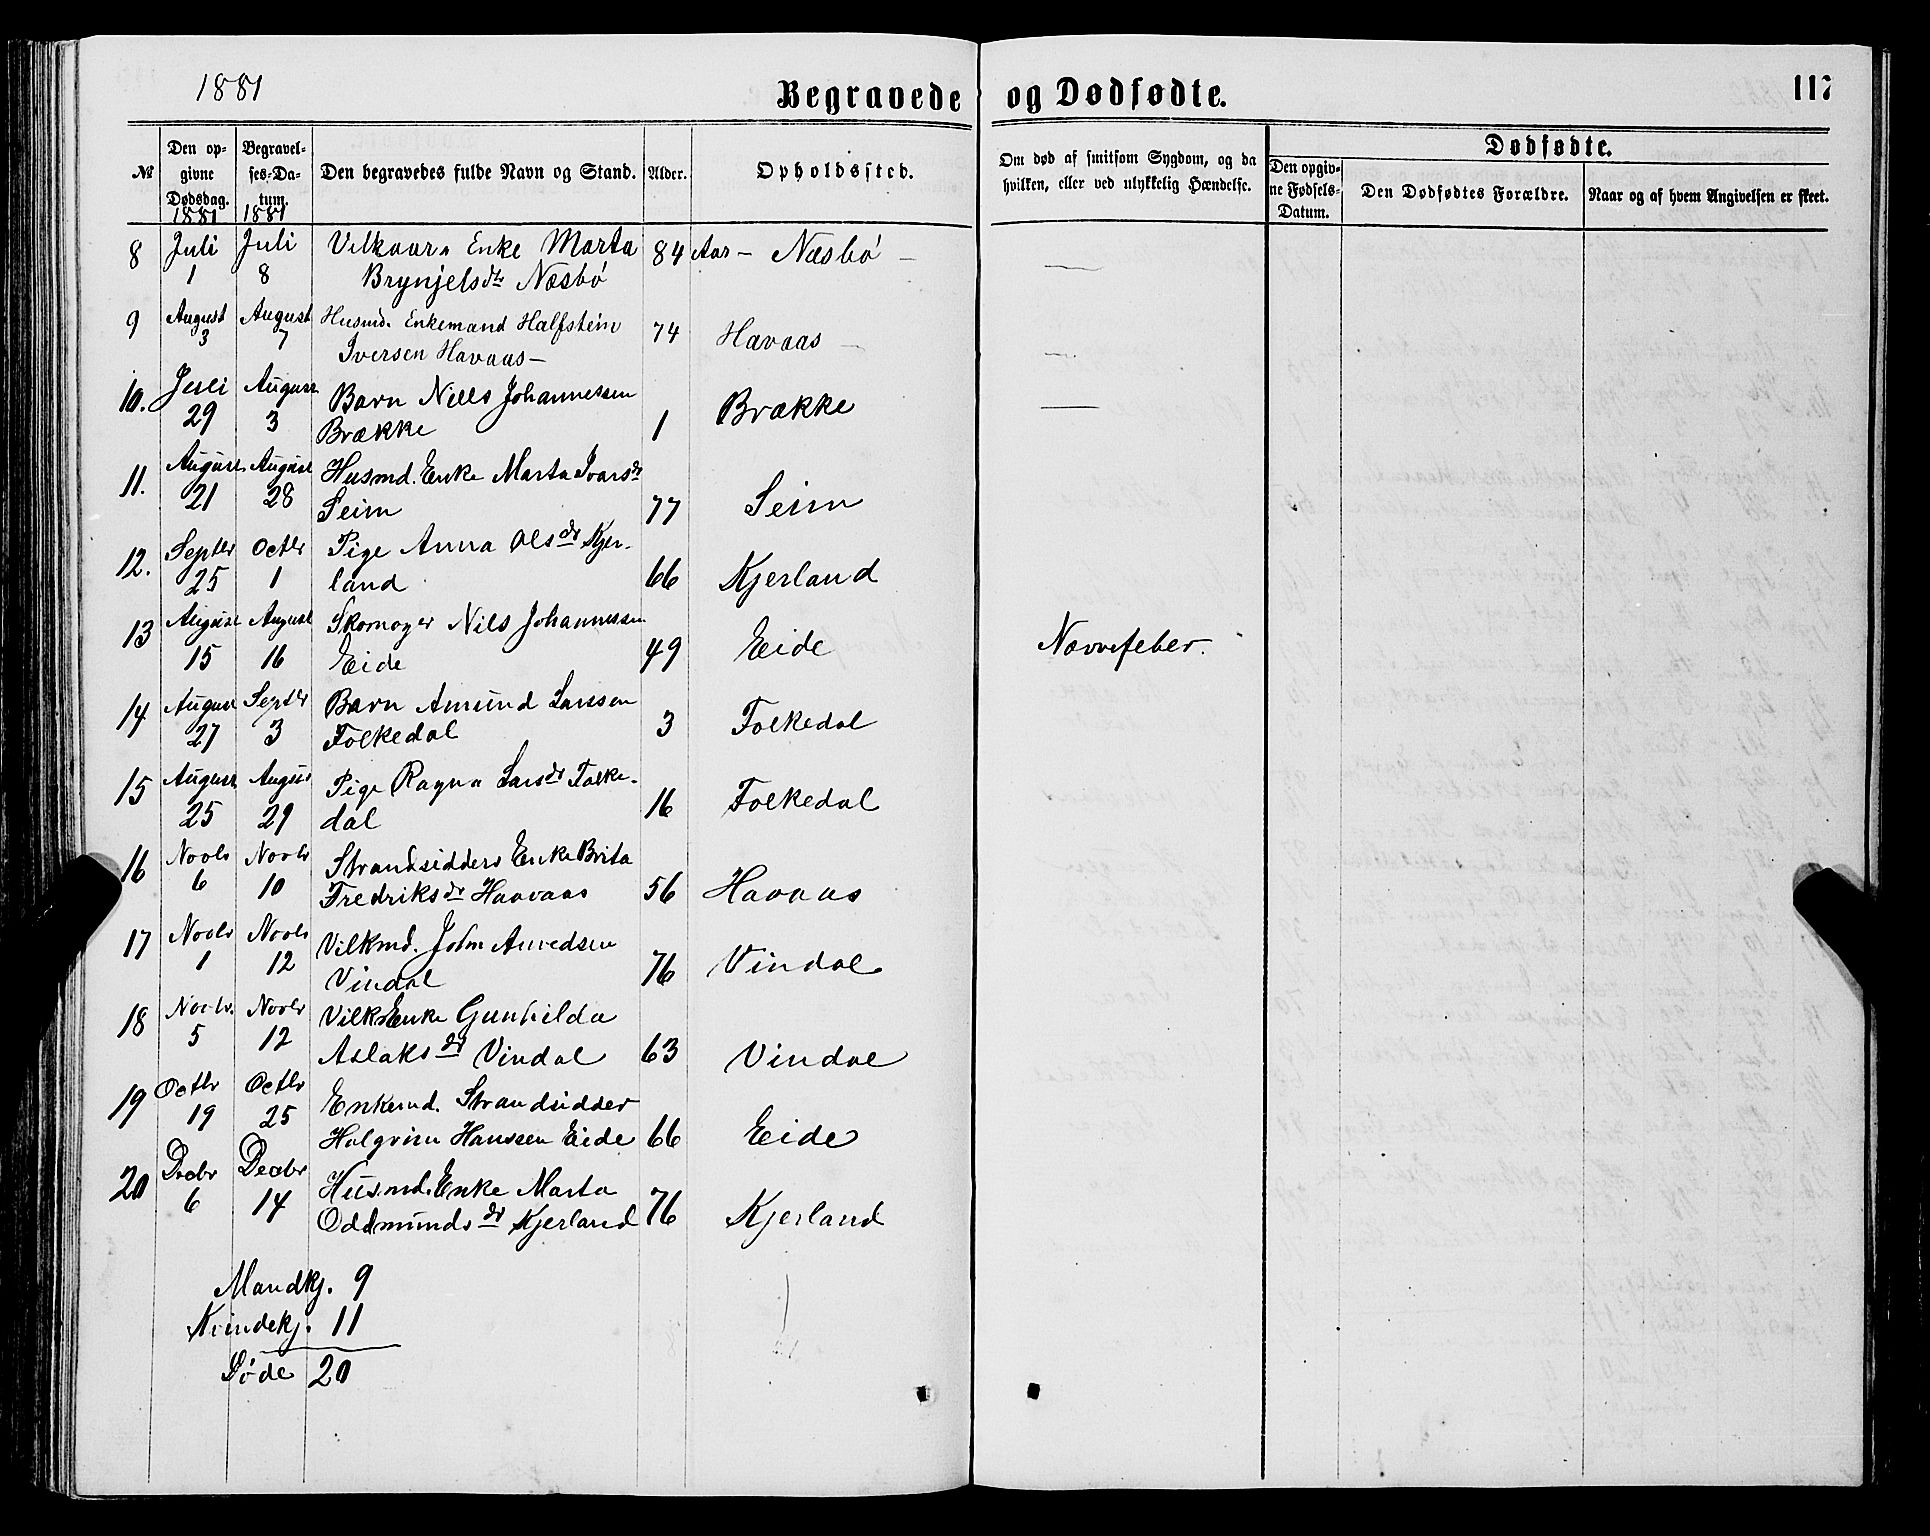 1881
Begravede og Dødfødte.
117
№
Den opgivne Dødsdag.
Begravelses-Datum.
Den begravedes fulde Navn og Stand.
Alder.
Opholdssted.
Om død af smitsom Sygdom, og da hvilken, eller ved ulykkelig Hændelse.
Dødfødte.
Den opgivne Fødsels-Datum.
Den Dødfødtes Forældre.
Naar og af hvem Angivelsen er skeet.
1881 1881
8 Juli 1 Juli 8 Vilkaars Enke Marta 84 Aar – Næsbø –
Brynjelsdtr Næsbø
9 August 3 August 7 Husmd. Enkemand Halfstein 74 Havaas –
Iversen Havaas –
10. Juli 29 August 3 Barn Niels Johannessen 1 Brække
Brække
11. August 21 August 28 Husmd. Enke Marta Ivarsdr 77 Seim
Seim
12. Septbr 25 Octbr 1 Pige Anna Olsdr Kjer- 66 Kjerland
land
13 August 15 August 16 Skomager Nils Johannessen 49 Eide Nervefeber.
Eide
14 August 27 Septbr 3 Barn Amund Larssen 3 Folkedal
Folkedal
15 August 25 August 29 Pige Ragna Larsdr Folke- 16 Folkedal
dal
16 Novbr 6 Novbr 10 Strandsidders Enke Brita 56 Havaas
Fredriksdr Haavaas
17 Novbr 1 Novbr 12 Vilkmd. John Amedsen 76 Vindal
Vindal
18 Novbr. 5 Novbr 12 Vilks Enke Gunhilda 63 Vindal
Aslaksdr Vindal
19 Octbr 19 Octbr 25 Enkemd. Strandsidder
Halgrim Hanssen Eide 66 Eide
20 Decbr 6 Decbr 14 Husmd. Enke Marta
Oddmundsdr Kjerland 76 Kjerland
Mandkj. 9
Kvindekj. 11
Døde 20